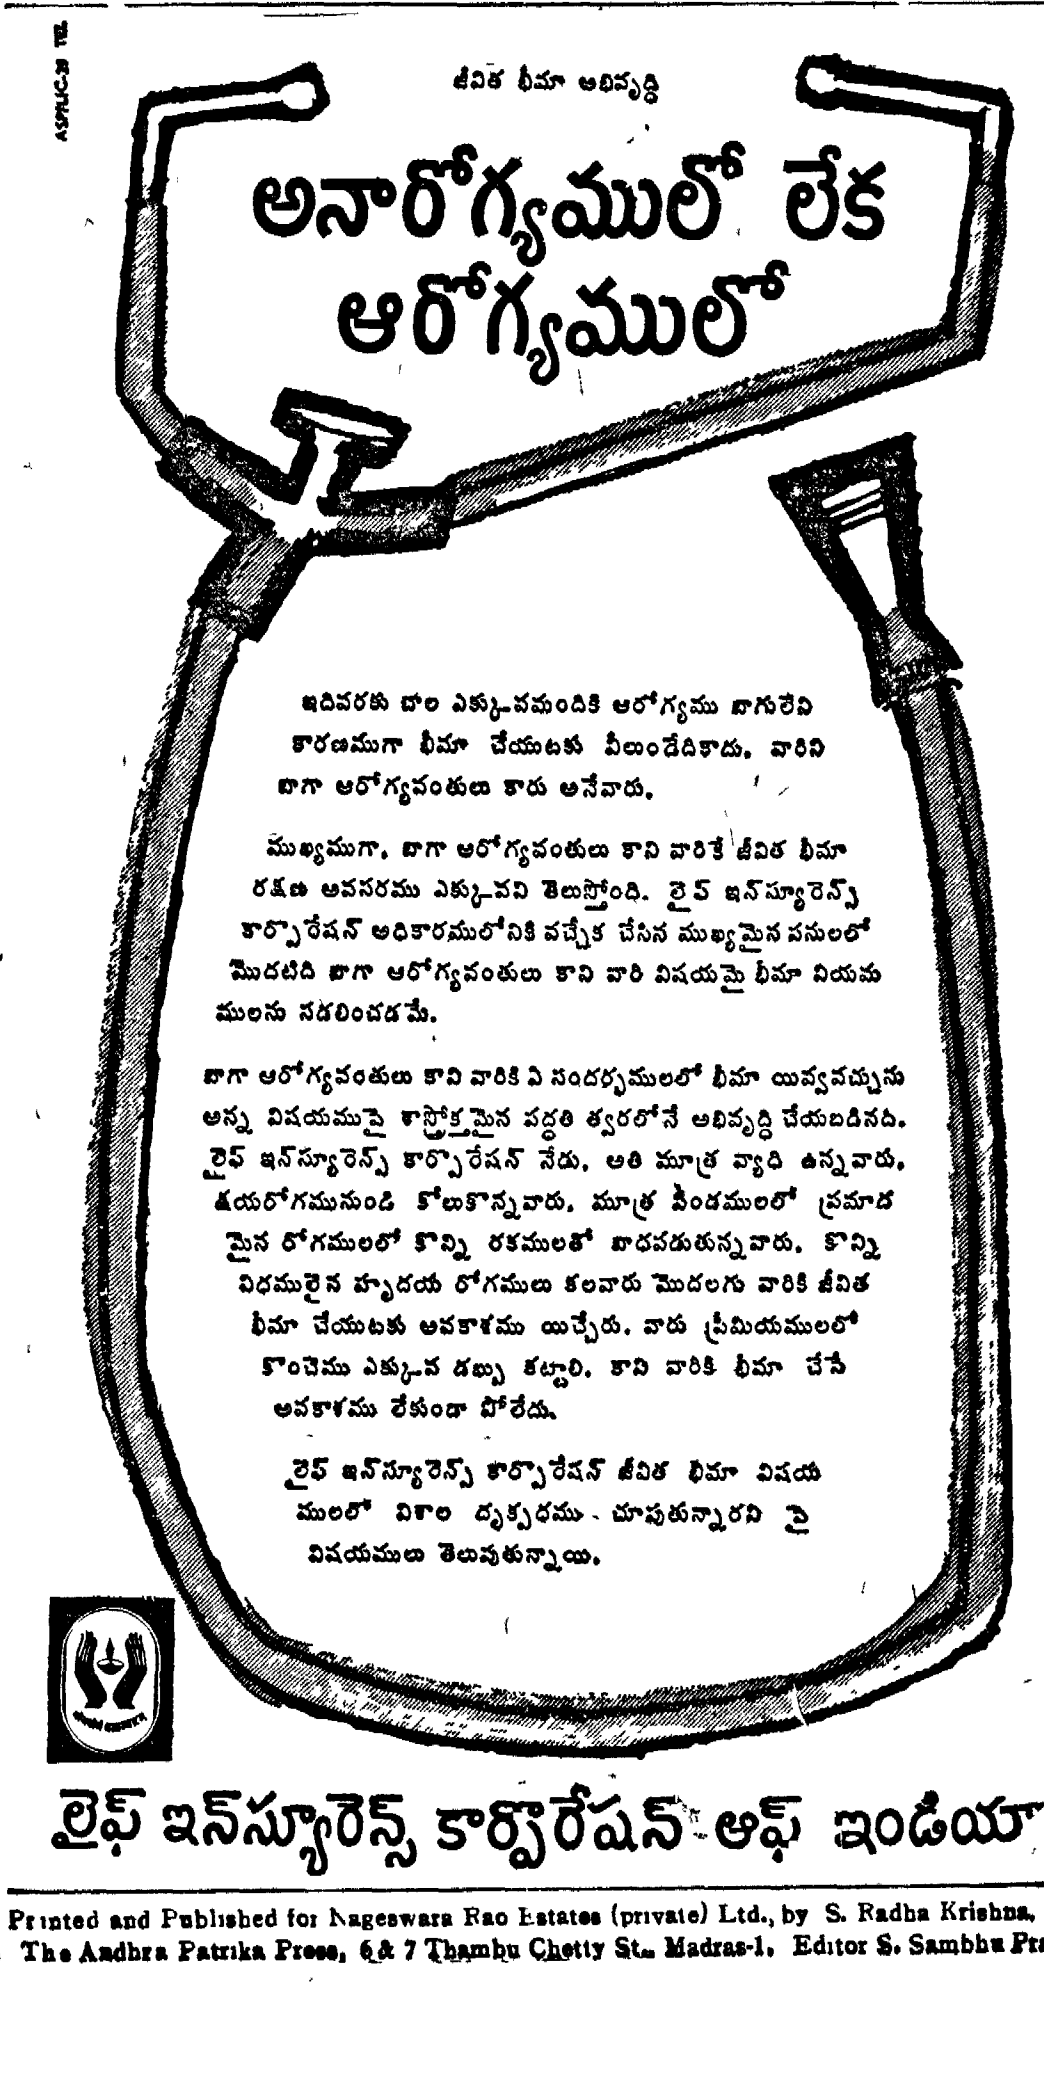 ASP/LIC-29 TEL
జీవిత భీమా అభివృద్ధి
అనారోగ్యములో లేక
ఆరోగ్యములో
ఇదివరకు చాల ఎక్కువమందికి ఆరోగ్యము బాగులేని
కారణముగా భీమా చేయుటకు వీలుండేదికాదు. వారిని
బాగా ఆరోగ్యవంతులు కారు అనేవారు.
ముఖ్యముగా, బాగా ఆరోగ్యవంతులు కాని వారికే జీవిత భీమా
రక్షణ అవసరము ఎక్కువని తెలుస్తోంది. లైఫ్ ఇన్‌స్యూరెన్స్
కార్పొరేషన్ అధికారములోనికి వచ్చేక చేసిన ముఖ్యమైన పనులలో
మొదటిది బాగా ఆరోగ్యవంతులు కాని వారి విషయమై భీమా నియమ
ములను సడలించడమే.
బాగా ఆరోగ్యవంతులు కాని వారికి ఏ సందర్భములలో భీమా యివ్వవచ్చును
అన్న విషయముపై శాస్త్రోక్తమైన పద్ధతి త్వరలోనే అభివృద్ధి చేయబడినది.
లైఫ్ ఇన్‌స్యూరెన్స్ కార్పొరేషన్ నేడు, అతి మూత్ర వ్యాధి ఉన్నవారు,
క్షయరోగమునుండి కోలుకొన్నవారు, మూత్ర పిండములలో ప్రమాద
మైన రోగములలో కొన్ని రకములతో బాధపడుతున్నవారు, కొన్ని
విధములైన హృదయ రోగములు కలవారు మొదలగు వారికి జీవిత
భీమా చేయుటకు అవకాశము యిచ్చేరు. వారు ప్రీమియములలో
కొంచెము ఎక్కువ డబ్బు కట్టాలి. కాని వారికి భీమా చేసే
అవకాశము లేకుండా పోలేదు.
లైఫ్ ఇన్‌స్యూరెన్స్ కార్పొరేషన్ జీవిత భీమా విషయ
ములలో విశాల దృక్పధము చూపుతున్నారని పై
విషయములు తెలుపుతున్నాయి.
లైఫ్ ఇన్‌స్యూరెన్స్ కార్పొరేషన్ ఆఫ్ ఇండియా
Printed and Published for Nageswara Rao Estates (private) Ltd., by S. Radha Krishna,
The Andhra Patrika Press, 6 & 7 Thambu Chetty St., Madras-1. Editor S. Sambhu Pra